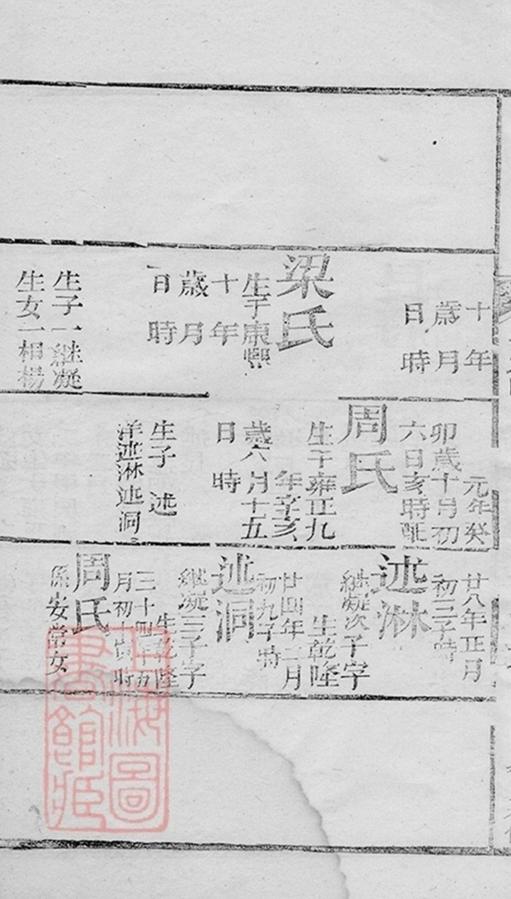 十年
歲月
日時
梁氏
生于康熙
十年
歲月
日時
生子一繼凝
生女一相楊
元年癸
卯歲十月初
六日亥時
周氏
生于雍正九
年辛亥
歲六月十五
日時
生子述
洋述淋述洞
廿八年正月
初三子時
述淋
繼凝次子字
生乾隆
廿四年二月
初九子時
述洞
繼凝三子字
生乾隆
三十四年十五
月初時
周氏
係安常女
上海圖
書館藏